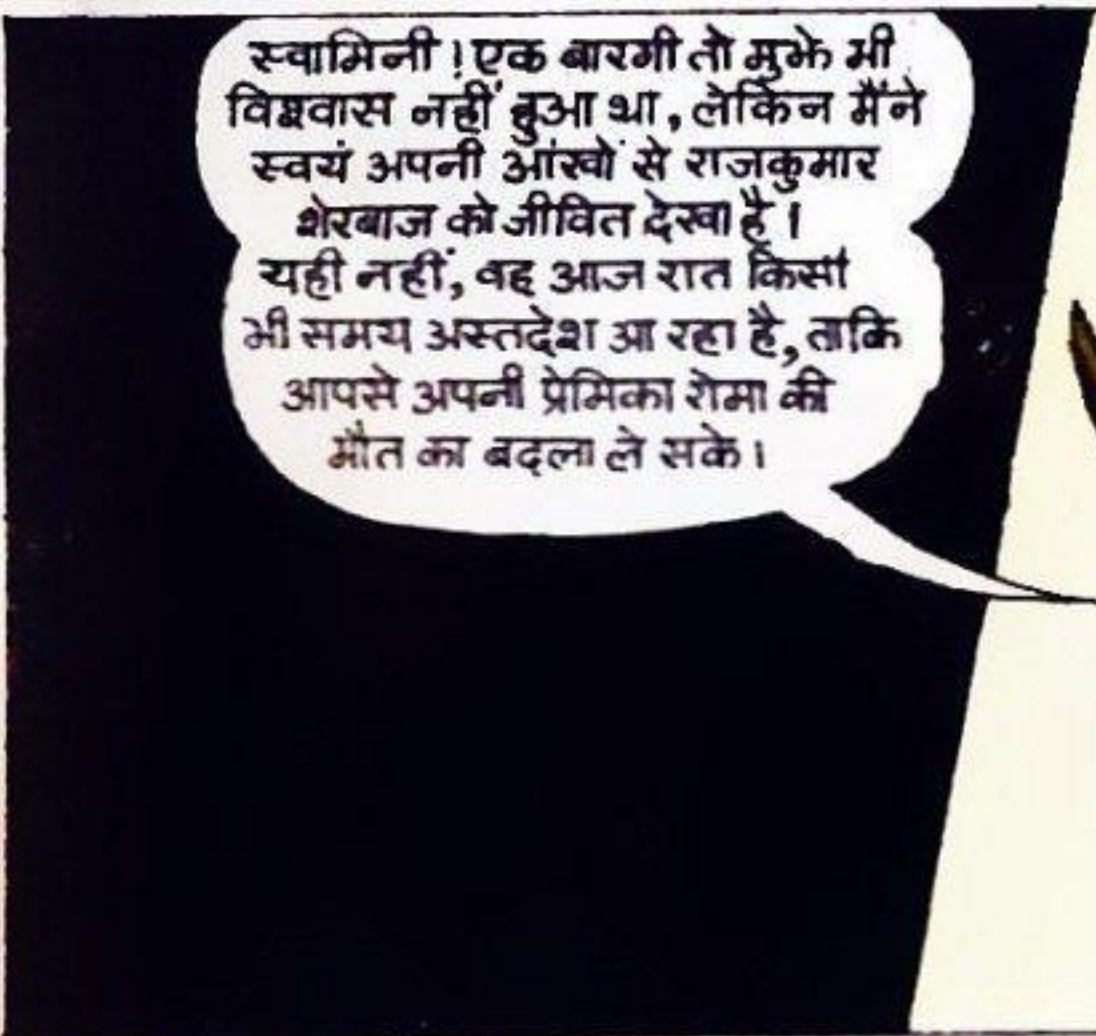 स्वामिनी ! एक बारगी तो मुझे भी
विश्वास नहीं हुआ था, लेकिन मैंने
स्वयं अपनी आंखों से राजकुमार
शेरबाज को जीवित देखा है ।
यही नहीं, वह आज रात किसी
भी समय अस्तदेश आ रहा है, ताकि
आपसे अपनी प्रेमिका रोमा की
मौत का बदला ले सके ।